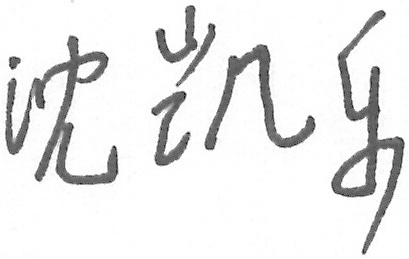 沈凯乐